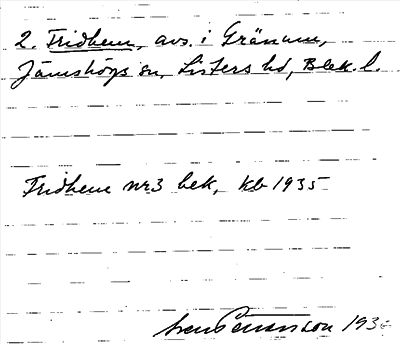 2. Fridhem, avs. i Gränum,
Jämshögs sn, Listers hd, Blek. l.
Fridhem nr3 bek, kb 1935
Sven Benson 193